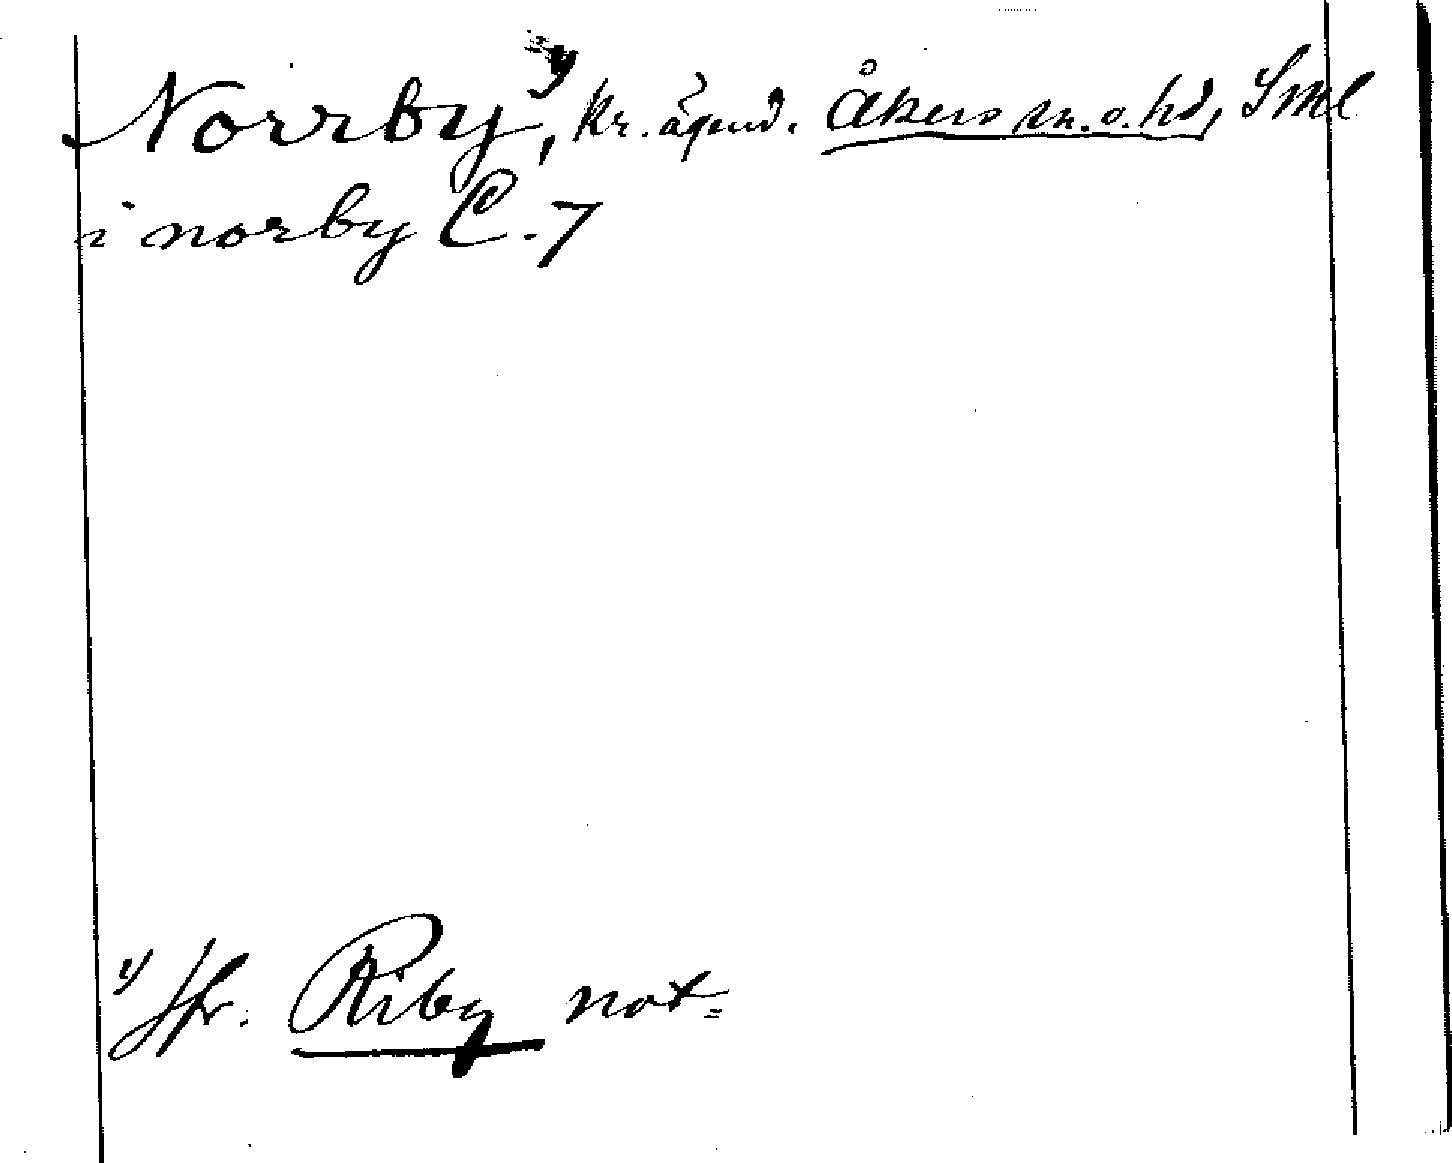 Norrby¹⁾, kr. ägend. Åkers sn. o. hd, Sml
i norby C. 7
¹⁾ Jfr. Riby not.